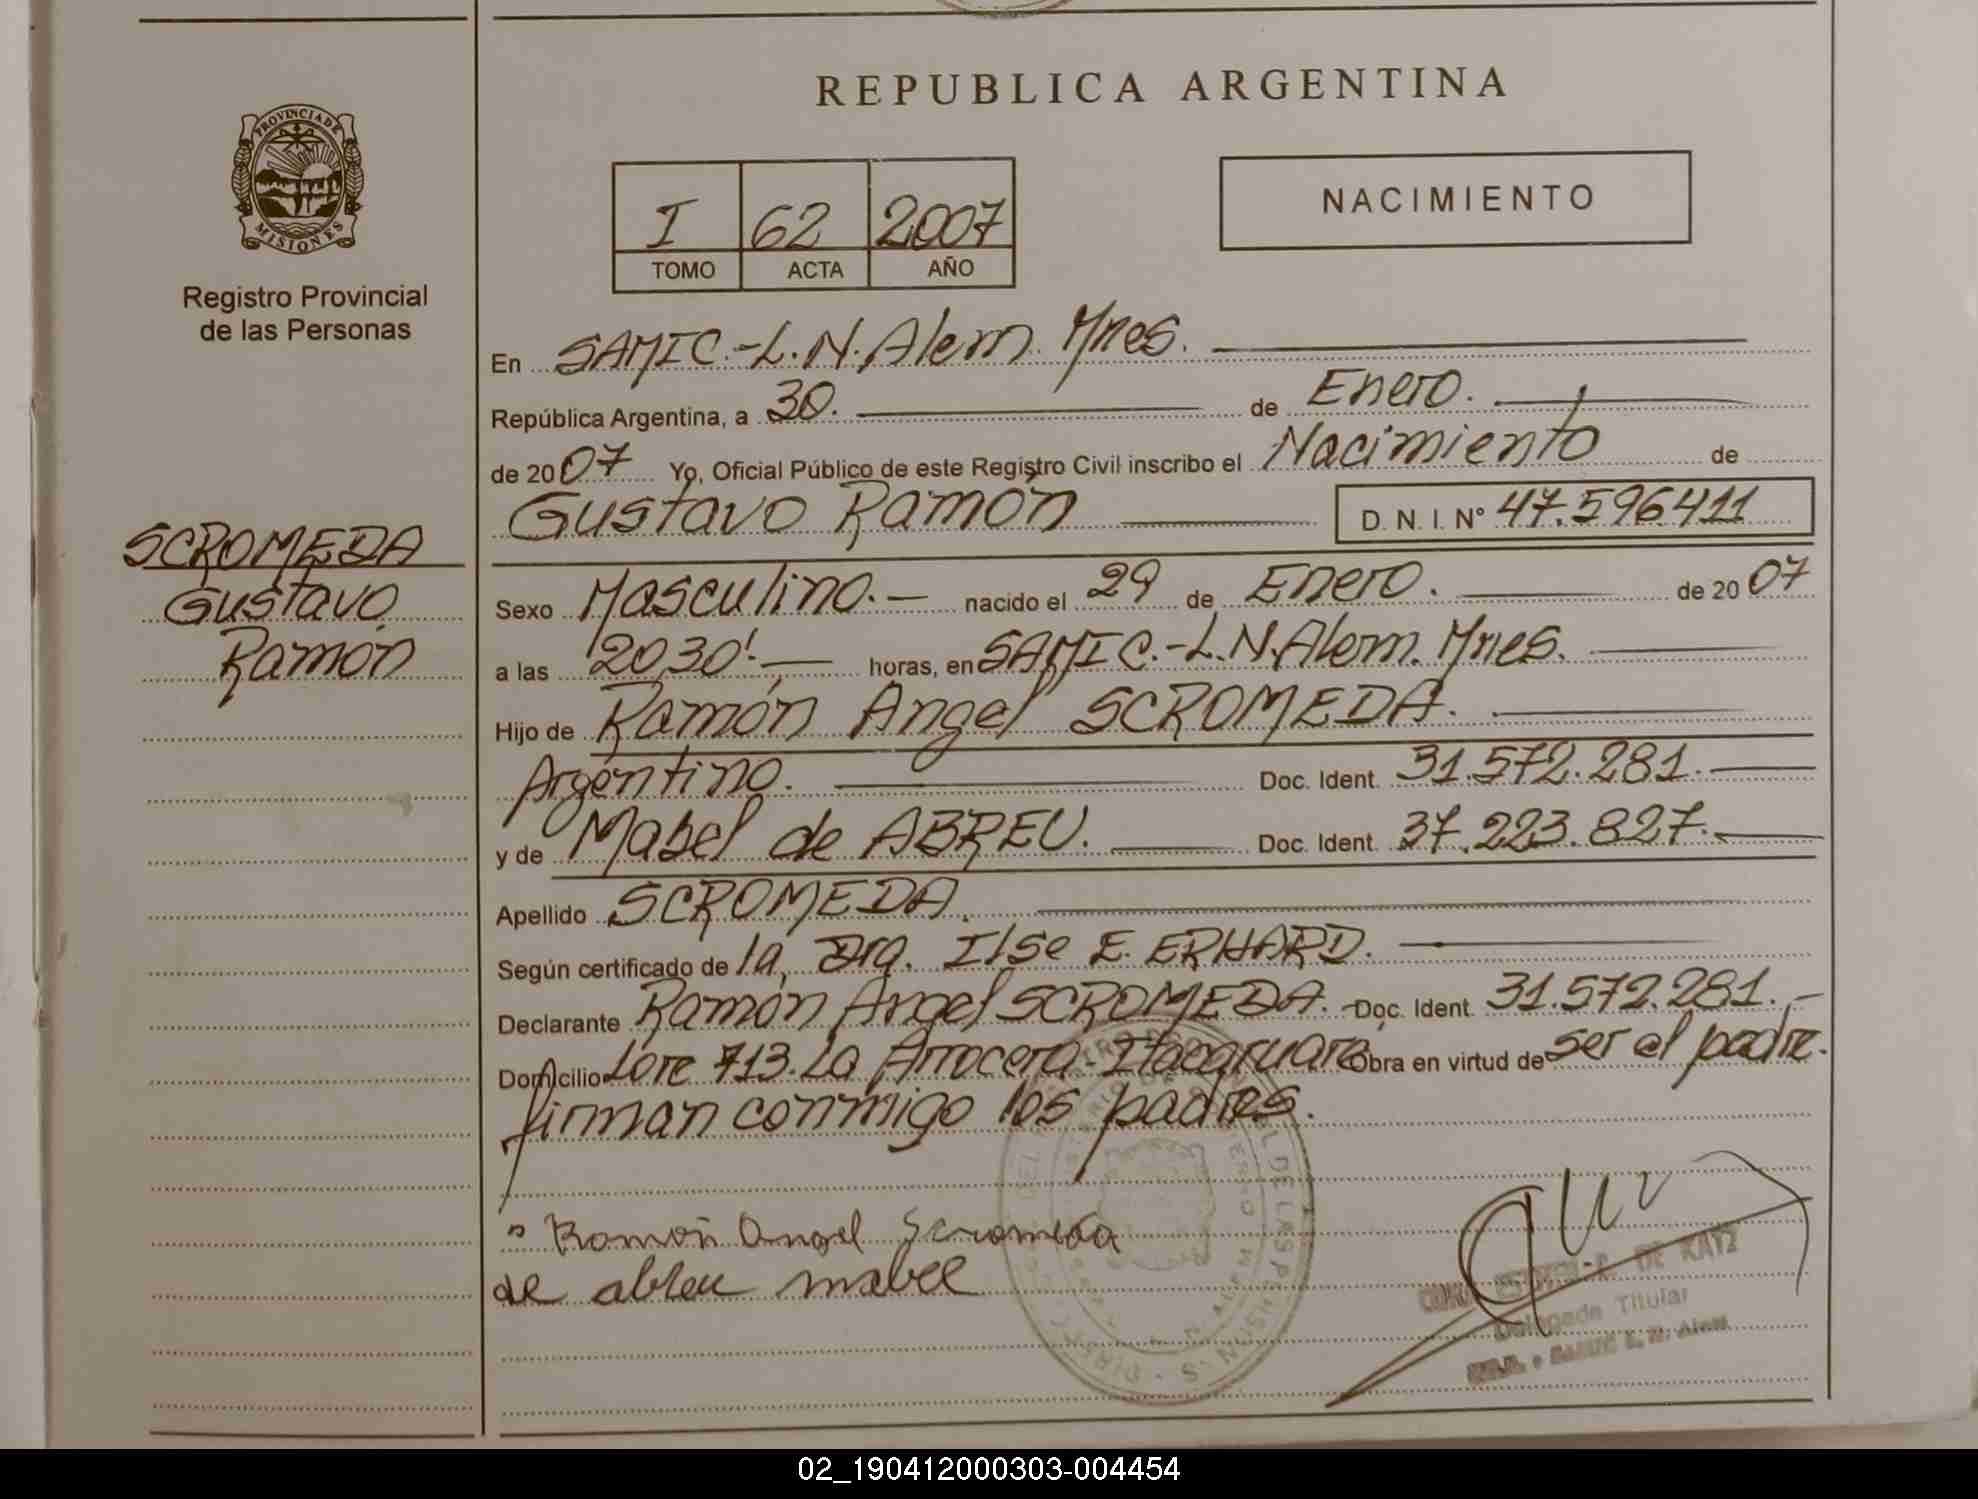 REPUBLICA ARGENTINA
PROVINCIA DE
MISIONES
Registro Provincial
de las Personas
I 62 2007
TOMO ACTA AÑO
NACIMIENTO
En SAMIC.-L.N.Alem. Mnes.
República Argentina, a 30. de Enero.
de 2007 Yo, Oficial Público de este Registro Civil inscribo el Nacimiento de
Gustavo Ramón D. N. I. Nº 47.596.411
SCROMEDA
Gustavo
Ramón
Sexo Masculino.- nacido el 29 de Enero. de 2007
a las 2030'.- horas, en SAMIC.-L.N.Alem. Mnes.
Hijo de Ramón Angel SCROMEDA.
Argentino. Doc. Ident. 31.572.281.
y de Mabel de ABREU. Doc. Ident. 37.223.827.
Apellido SCROMEDA.
Según certificado de la Dra. Ilse E. ERHARD.
Declarante Ramón Angel SCROMEDA. Doc. Ident. 31.572.281.-
Domicilio Lote 713. La Arrocera-Itacaruaré Obra en virtud de ser el padre.
firman conmigo los padres.
Ramón Angel Scromeda
de abreu mabel
DE KATZ
Delegada Titular
L. N. Alem
02_190412000303-004454